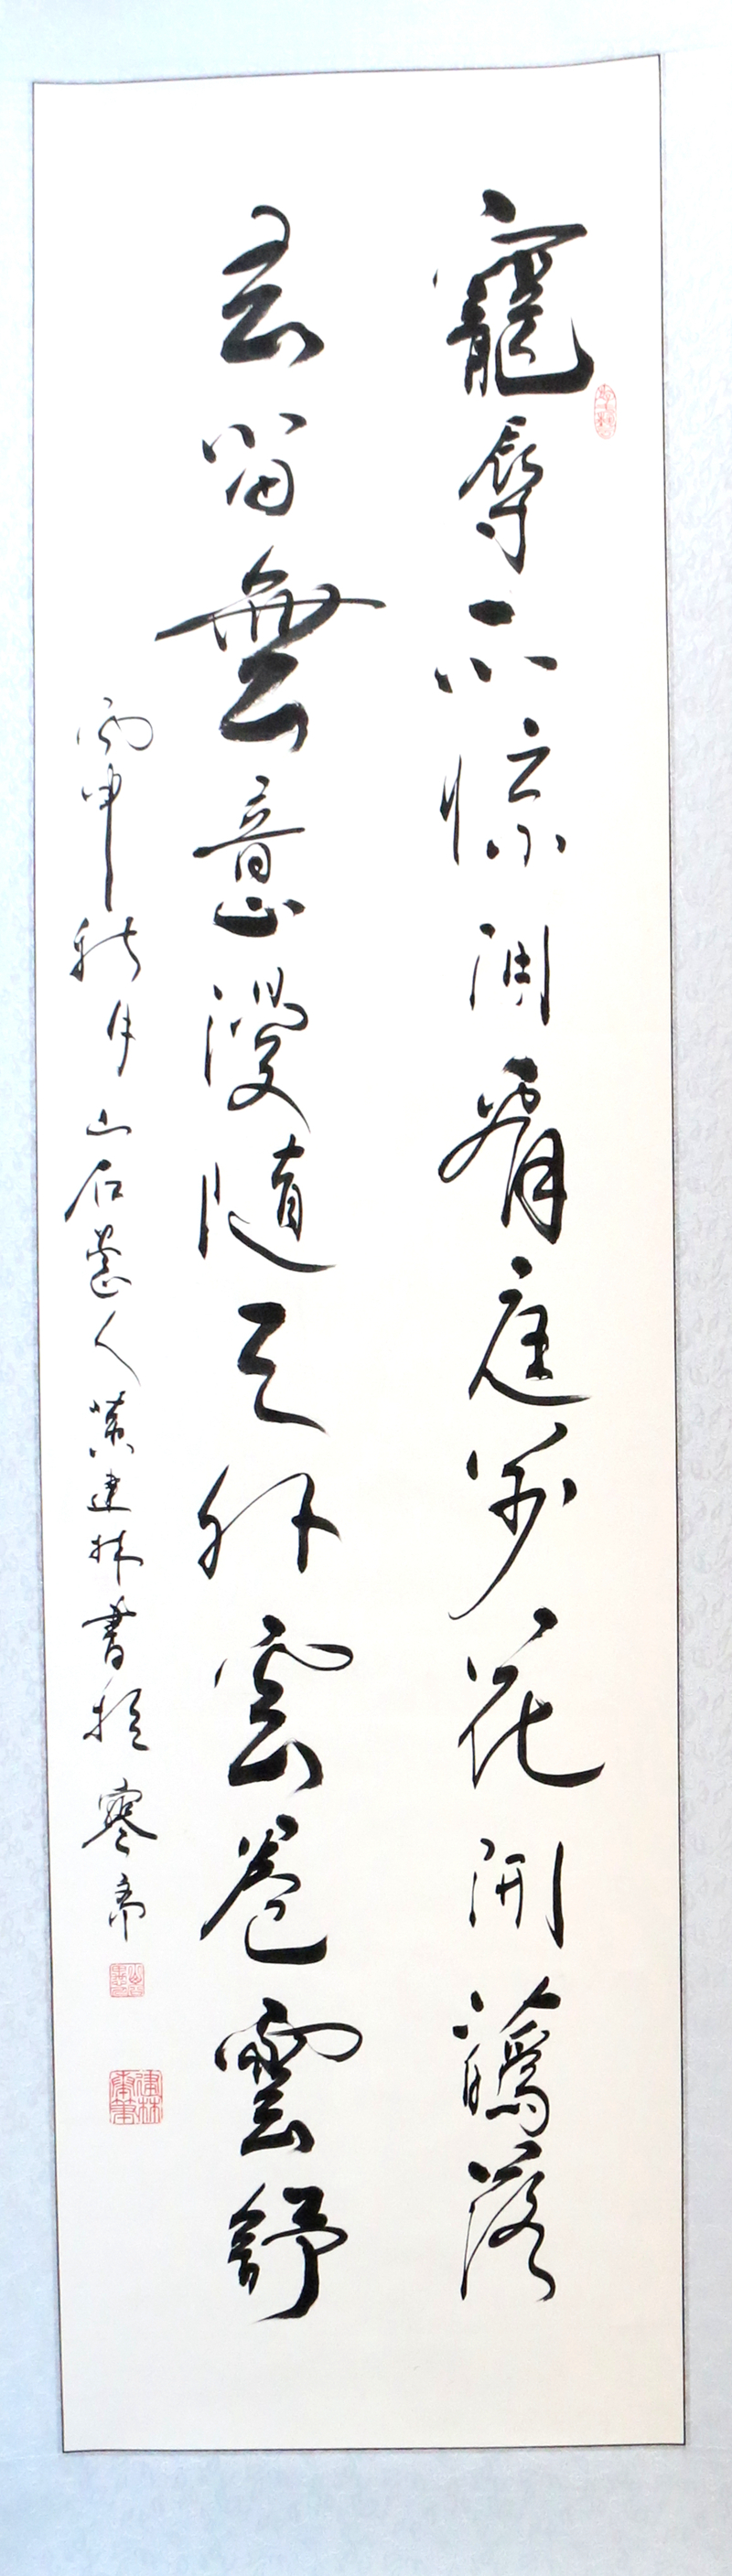 寵辱不惊閒看庭前花開蘤落
去留無意漫隨天外雲卷雲舒
丙申秋月山石人黄建林書於寒